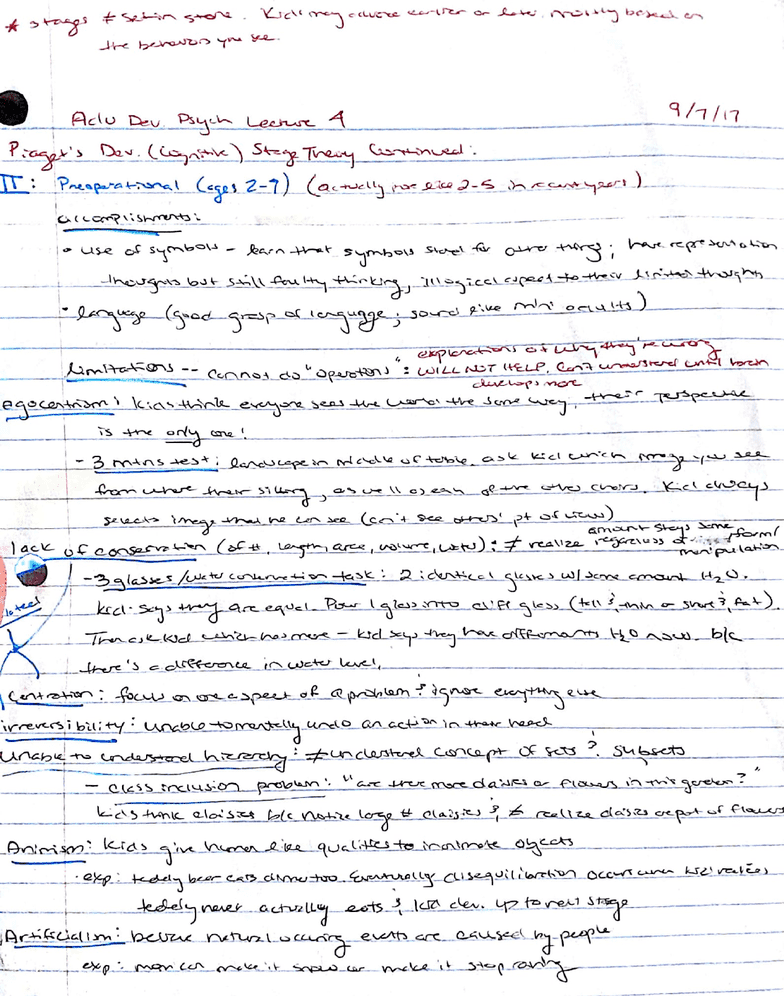 * stages ≠ set in stone. Kids may advance earlier or later, mostly based on
the behaviors you see.
Adv Dev. Psych Lecture 4 9/7/17
Piaget's Dev. (Cognitive) Stage Theory Continued:
II: Preoperational (ages 2-7) (actually more like 2-5 in recent years)
accomplishments:
• use of symbols - learn that symbols stand for other things; have representation
thoughts but still faulty thinking, illogical aspect to their limited thoughts
• language (good grasp of language; sound like mini adults)
explanations of why they're wrong
limitations -- cannot do "operations": WILL NOT HELP, can't understand until brain
develops more
egocentrism: kids think everyone sees the world the same way, their perspective
is the only one!
- 3 mtns test: landscape in middle of table, ask kid which image you see
from where their sitting, as well as each of the other chairs. Kid always
selects image that he can see (can't see others' pt of view)
amount stays same
lack of conservation (of #, length, area, volume, water): ≠ realize regardless of form/
manipulation
- 3 glasses/water conservation task: 2 identical glasses w/ same amount H₂O.
kid says they are equal. Pour 1 glass into diff glass (tall & thin or short & fat)
Then ask kid which has more - kid says they have diff amounts H₂O now b/c
there's a difference in water level.
Centration: focus on one aspect of a problem & ignore everything else
irreversibility: unable to mentally undo an action in their head
Unable to understand hierarchy: ≠ understand concept of sets & subsets
- class inclusion problem: "are there more daisies or flowers in this garden?"
kids think daisies b/c notice large # daisies & ≠ realize daisies are part of flowers
Animism: kids give human like qualities to inanimate objects
• exp: teddy bear eats dinner too. Eventually disequilibration occurs when kid realizes
teddy never actually eats & kid dev. up to next stage
Artificialism: believe natural occuring events are caused by people
exp: man can make it snow or make it stop raining